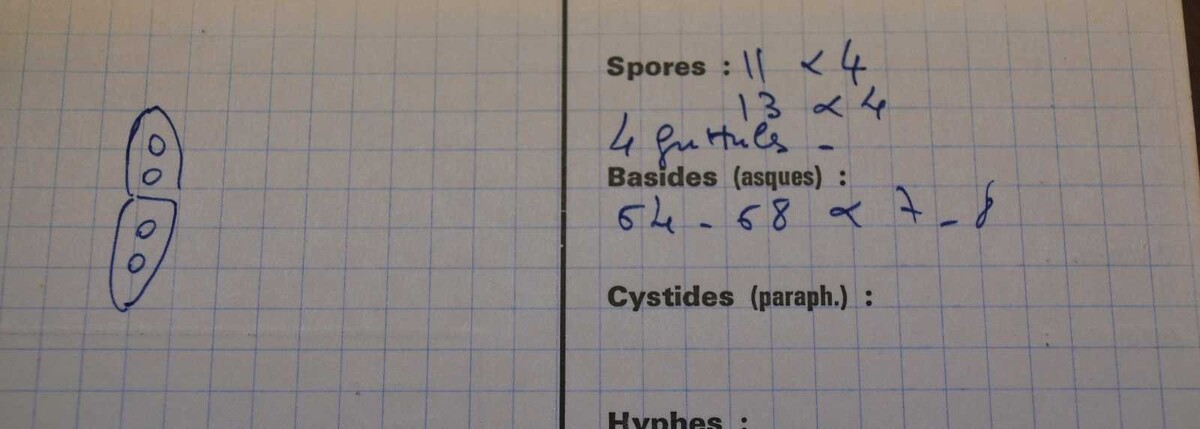 Spores : 11 x 4
13 x 4
4 guttules -
Basides (asques) :
64 - 68 x 7 - 8
Cystides (paraph.) :
Hyphes :